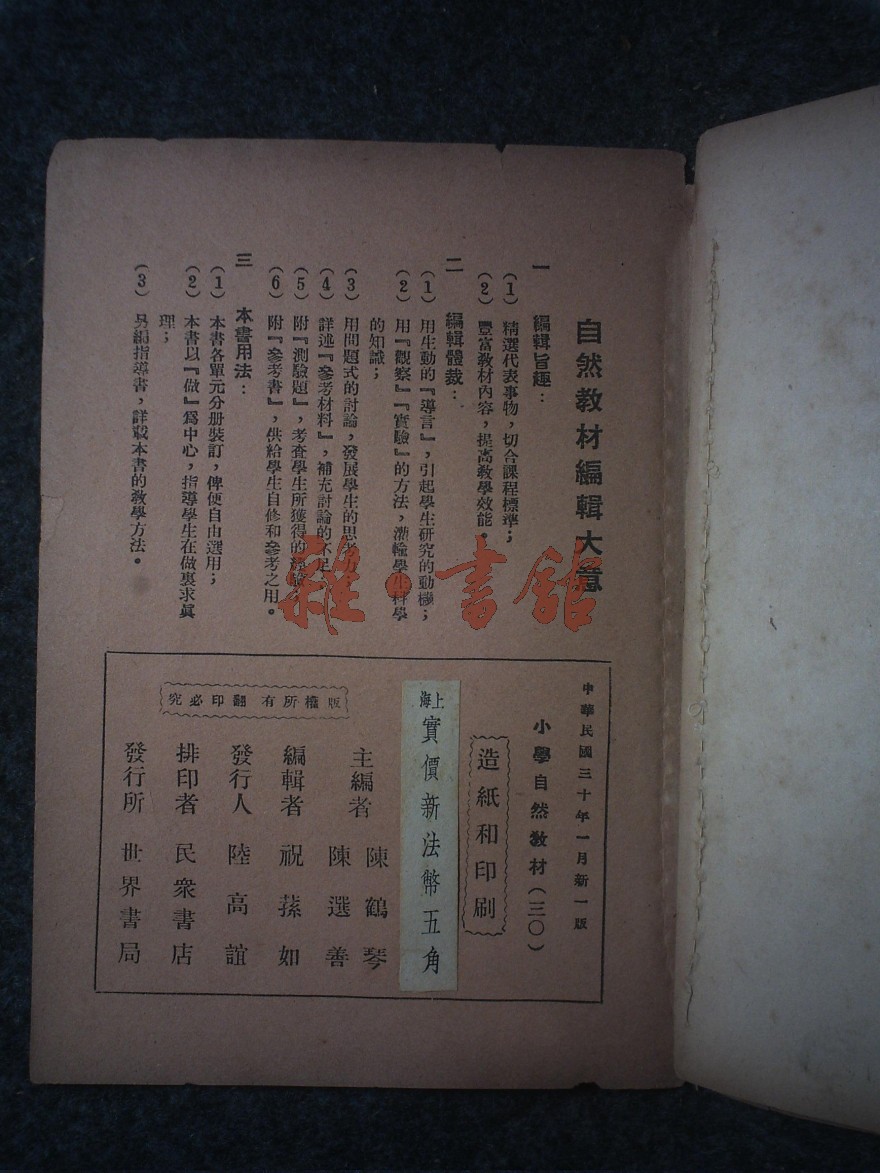 自然教材編輯大意
一 編輯旨趣：
(1) 精選代表事物，切合課程標準；
(2) 豐富教材內容，提高教學效能。
二 編輯體裁：
(1) 用生動的『導言』，引起學生研究的動機；
(2) 用『觀察』『實驗』的方法，灌輸學生科學
的知識；
(3) 用問題式的討論，發展學生的思考力
(4) 詳述『參考材料』，補充討論的不足
(5) 附『測驗題』，考查學生所獲得的
(6) 附『參考書』，供給學生自修和參考之用。
三 本書用法：
(1) 本書各單元分册裝訂，俾便自由選用；
(2) 本書以『做』爲中心，指導學生在做裏求眞
理；
(3) 另編指導書，詳載本書的教學方法。
雜·書館
中華民國三十年一月新一版
小學自然教材(三〇)
造紙和印刷
上海
實價新法幣五角
主編者 陳鶴琴
陳選善
編輯者 祝蓀如
發行人 陸高誼
排印者 民衆書店
發行所 世界書局
版權所有 翻印必究